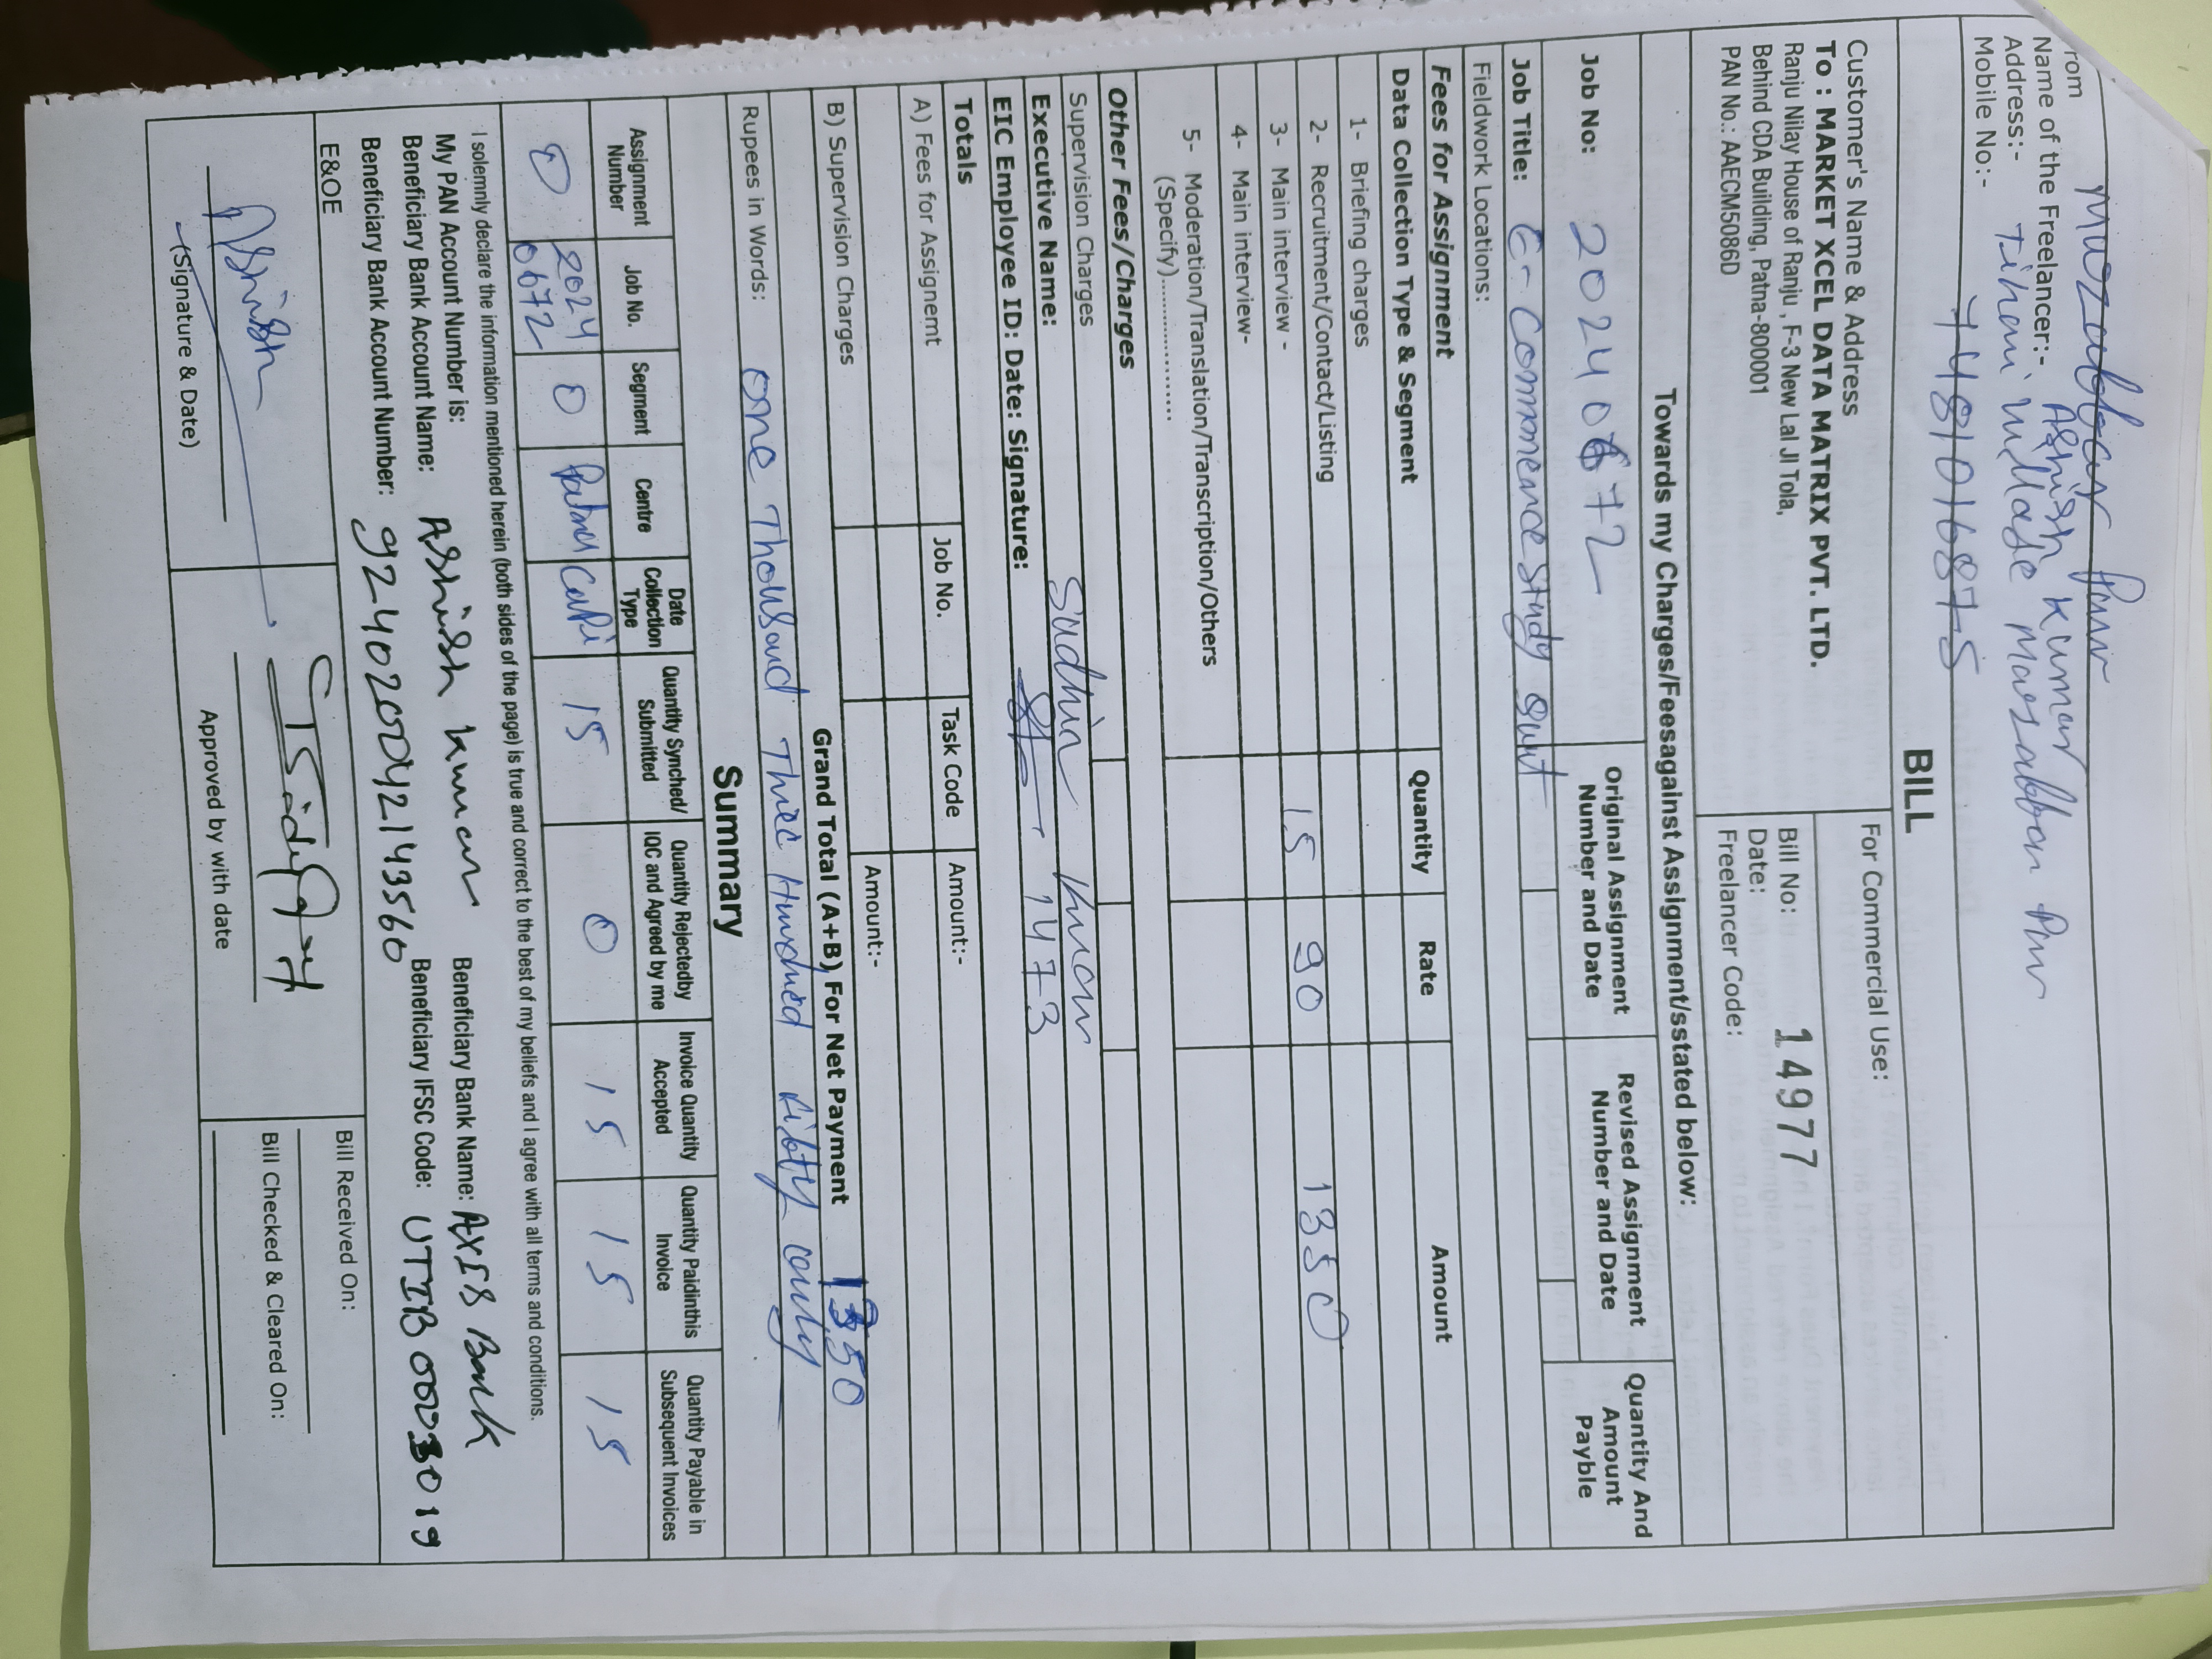 Muzaffar Pur
rom
Name of the Freelancer:- Ashish Kumar
Address:- village Pur
Mobile No:- 7481016875
BILL
Customer's Name & Address
To : MARKET XCEL DATA MATRIX PVT. LTD.
Ranju Nilay House of Ranju , F-3 New Lal JI Tola,
Behind CDA Building, Patna-800001
PAN No.: AAECM5086D
For Commercial Use:
Bill No: 14977
Date:
Freelancer Code:
Towards my Charges/Feesagainst Assignment/sstated below:
Job No: 20240672
Original Assignment Number and Date
Revised Assignment Number and Date
Quantity And Amount Payble
Job Title: E-Commerence Study
Fieldwork Locations:
Fees for Assignment
Data Collection Type & Segment Quantity Rate Amount
1- Briefing charges
2- Recruitment/Contact/Listing
3- Main interview - 15 90 1350
4- Main interview-
5- Moderation/Translation/Transcription/Others
(Specify)..............
Other Fees/Charges
Supervision Charges
Executive Name: Sudhir Kumar
EIC Employee ID: Date: Signature: 1473
Totals
A) Fees for Assignemt Job No. Task Code Amount:-
B) Supervision Charges Amount:-
Grand Total (A+B) For Net Payment 1350
Rupees in Words: One Thousand Three Hundred fifty only
Summary
Assignment Number
Job No.
Segment
Centre
Date Collection Type
Quantity Synched/ Submitted
Quantity Rejectedby IQC and Agreed by me
Invoice Quantity Accepted
Quantity Paidinthis Invoice
Quantity Payable in Subsequent Invoices
0 2024 0672 0 Patna Capi 15 0 15 15 15
I solemnly declare the information mentioned herein (both sides of the page) is true and correct to the best of my beliefs and I agree with all terms and conditions.
My PAN Account Number is:
Beneficiary Bank Account Name: Ashish Kumar Beneficiary Bank Name: AXIS Bank
Beneficiary Bank Account Number: 924020042143560 Beneficiary IFSC Code: UTIB0003019
E&OE
Ashish
(Signature & Date)
Approved by with date
Bill Received On:
Bill Checked & Cleared On: